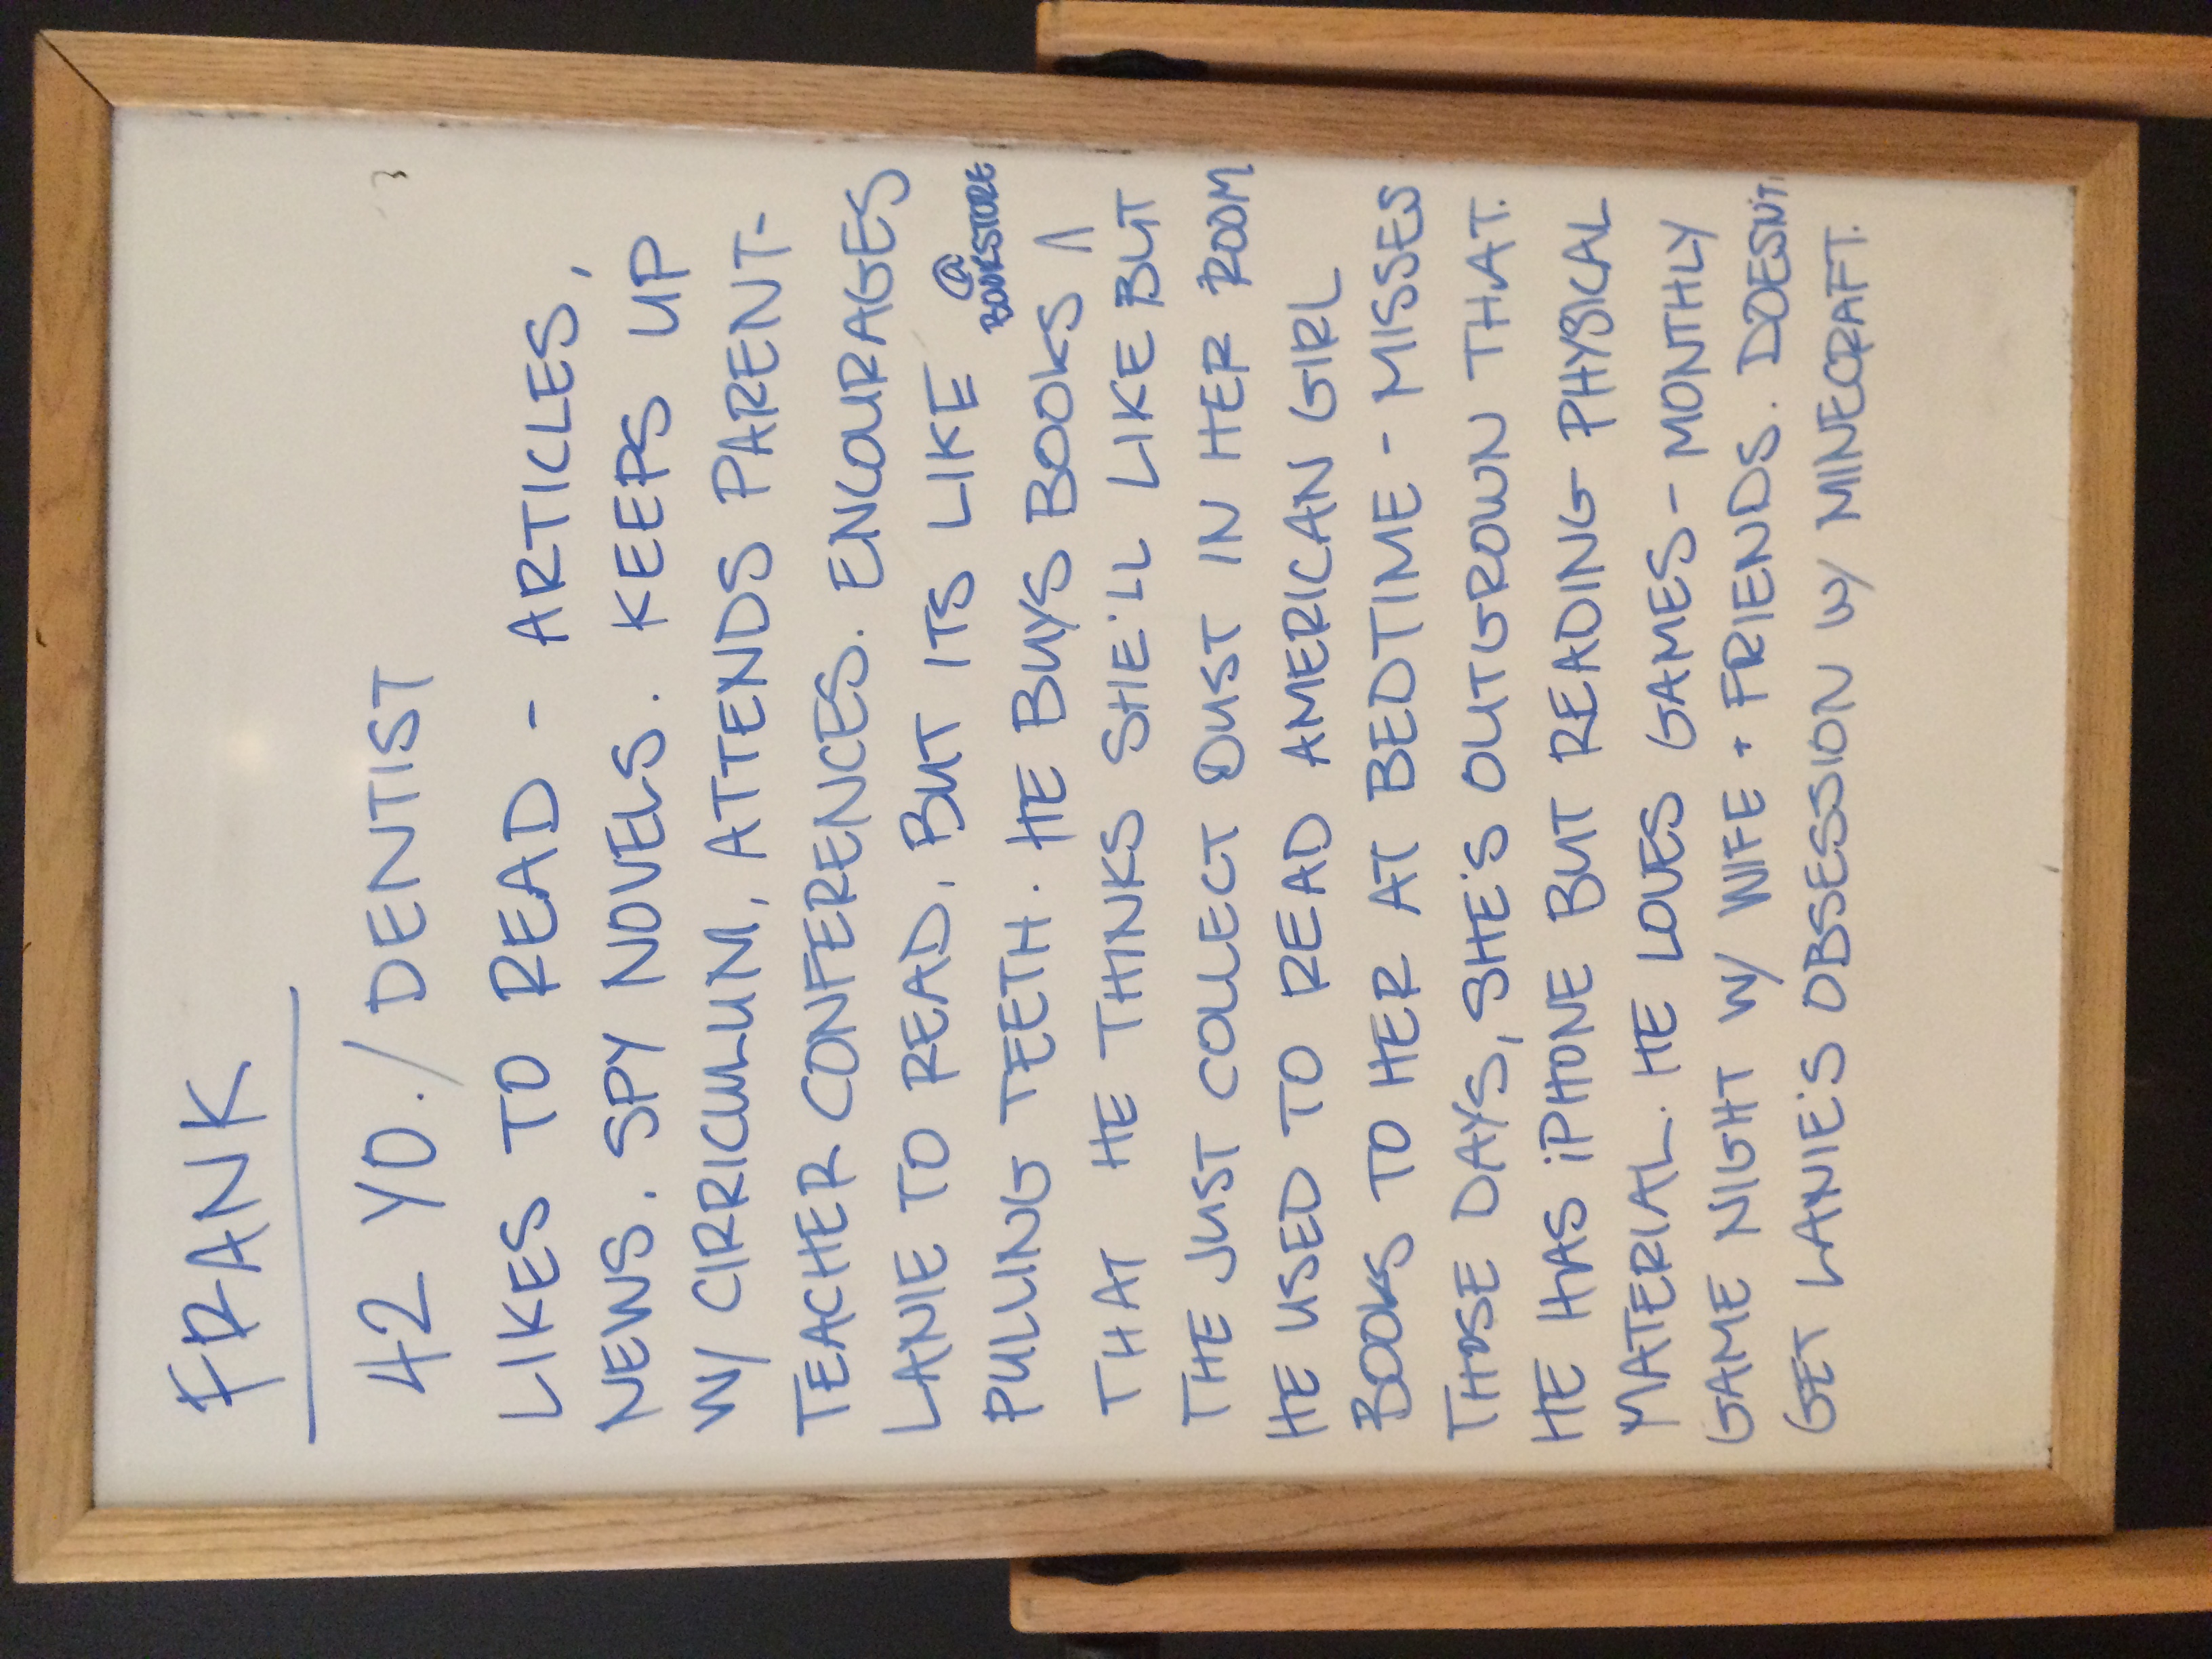 FRANK
42 YO. / DENTIST
LIKES TO READ - ARTICLES,
NEWS. SPY NOVELS. KEEPS UP
W/ CIRRICULUM, ATTENDS PARENT-
TEACHER CONFERENCES. ENCOURAGES
LANIE TO READ. BUT ITS LIKE
@
BOOKSTORE
PULLING TEETH. HE BUYS BOOKS ^
THAT HE THINKS SHE'LL LIKE BUT
THE JUST COLLECT DUST IN HER ROOM
HE USED TO READ AMERICAN GIRL
BOOKS TO HER AT BEDTIME - MISSES
THOSE DAYS, SHE'S OUTGROWN THAT.
HE HAS iPHONE BUT READING PHYSICAL
MATERIAL. HE LOVES GAMES - MONTHLY
GAME NIGHT W/ WIFE + FRIENDS. DOESN'T
GET LANIE'S OBSESSION W/ MINECRAFT.